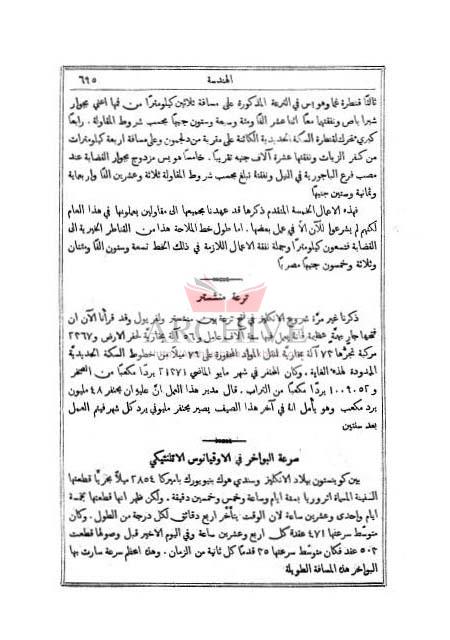 الهندسة ٦٩٥
ثالثًا قنطرة فم وهويس في الترعة المذكورة على مسافة ثلاثين كيلومترًا من فمها اعني بجوار
شبرا باص ونفقتها معًا اثنا عشر الفًا ومئة وسبعة وستون جنيهًا بحسب شروط المقاولة . رابعًا
كبري متحرك لقنطرة السكة الحديدية الكائنة على مقربة من دلجمون وعلى مسافة اربعة كيلومترات
من كفر الزيات ونفقتها عشرة آلاف جنيه تقريبًا . خامسًا هويس مزدوج بجوار القضابة عند
مصب فرع الباجورية في النيل ونفقتة تبلغ بحسب شروط المقاولة ثلاثة وعشرين الفًا واربعماية
وثمانية وستين جنيهًا
فهذه الاعمال الخمسة المتقدم ذكرها قد عهدنا بجميعها الى مقاولين يعملونها في هذا العام
لكنهم لم يشرعوا للآن الاّ في عمل بعضها . اما طول خط الملاحة هذا من القناطر الخيرية الى
القضابة فتسعون كيلومترًا وجملة نفقة الاعمال اللازمة في ذلك الخط تسعة وستون الفًا ومئتان
وثلاثة وخمسون جنيهًا مصريًا
ترعة منشستر
ذكرنا غير مرّة شروع الانكليز في فتح ترعة بين منشستر ولفربول وقد قرأنا الآن ان
بخارية لحفر الارض و٢٣٦٧
مركبة تجرُّها ٧٣ آلة بخاريَّة لنقل المواد المحفورة على ٧٦ ميلاً من خطوط السكة الحديديَّة
الممدودة لهذه الغاية . وكان المحفر في شهر مايو الماضي ٢١٢٧١ يردًا مكعبًا من الصخر
و ١٠٠٩٠٥٢ يردًا مكعبًا من التراب . قال مدير هذا العمل انَّ عليوان يحفر ٤٨ مليون
يرد مكعب وهو يأمل انهُ في آخر هذا الصيف يصير يحفر مليوني يرد كل شهر فيتم العمل
بعد سنتين
سرعة البواخر في الاوقيانوس الاتلنتيكي
بين كوينستون ببلاد الانكليز وسندي هوك بنيويورك باميركا ٢٨٥٤ ميلاً بحريًّا قطعتها
السفينة المسماة اتروريا بستة ايام وساعة وخمس وخمسين دقيقة . ولكن ظهر انها قطعتها بخمسة
ايام واحدى وعشرين ساعة لان الوقت يتأخر اربع دقائق لكل درجة من الطول . وكان
متوسط سرعتها ٤٧١ عقدة كل اربع وعشرين ساعة وفي اليوم الاخير قبل وصولها قطعت
٥٠٣ عقد فكان متوسط سرعتها ٣٥ قدمًا كل ثانية من الزمان . وهذه اعظم سرعة سارت بها
البواخر هذه المسافة الطويلة
ARCHIVE